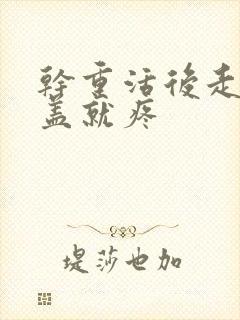 幹重活後走
盖就疼
堤莎也加